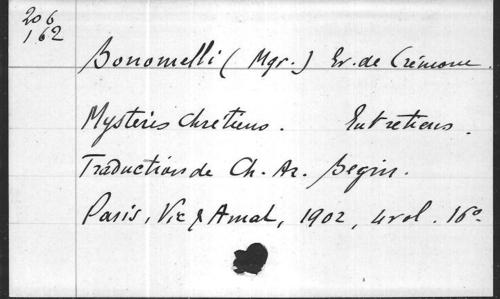 206
162
Bonomelli (Mgr.) Ev. de Crémone.
Mystères chrétiens. Entretiens.
Traduction de Ch. Ar. Begin.
Paris, Vic & Amat, 1902, 4 vol. 16º